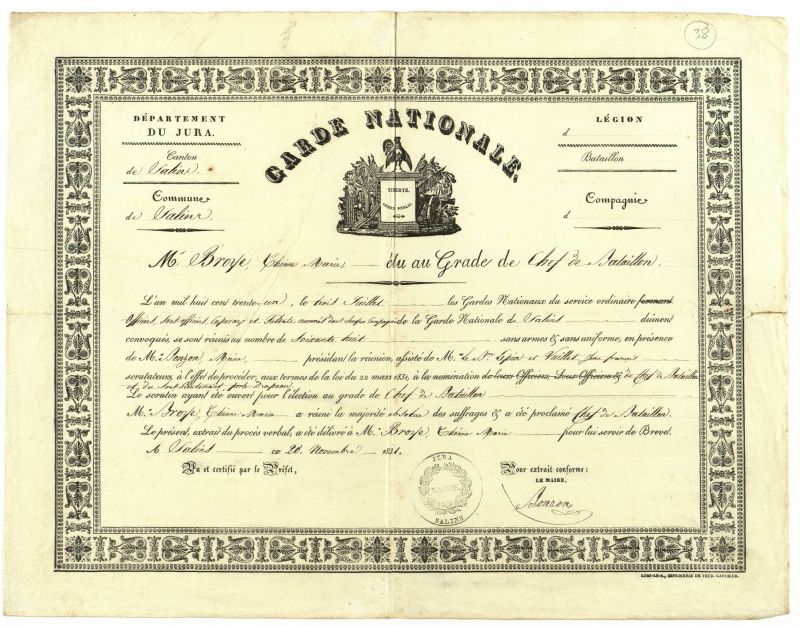 38
DÉPARTEMENT
DU JURA.
Canton
de Salins
Commune
de Salins
GARDE NATIONALE.
LIBERTÉ.
ORDRE PUBLIC.
LÉGION
d
Bataillon
Compagnie
d
Mr. Broye, Etienne Marie, élu au Grade de Chef de Bataillon.
L'an mil huit cent trente-un, le trois Juillet les Gardes Nationaux du service ordinaire formant
officiers, sous officiers, Caporaux et Soldats de la Garde Nationale de Salins dûment
convoqués, se sont réunis au nombre de Soixante huit sans armes & sans uniforme, en présence
de M. Bonzon, Maire, présidant la réunion, assisté de M. le Sr. et Jean français
scrutateurs, à l'effet de procéder, aux termes de la loi du 22 mars 1831, à la nomination de leurs Officiers, Sous-Officiers & du Chef de Bataillon
et du Sous Lieutenant porte Drapeau.
Le scrutin ayant été ouvert pour l'élection au grade de Chef de Bataillon
M. Broye, Etienne Marie a réuni la majorité absolue des suffrages & a été proclamé Chef de Bataillon.
Le présent, extrait du procès verbal, a été délivré à M. Broye, Etienne Marie pour lui servir de Brevet.
A Salins ce 20 Novembre 1831.
Vu et certifié par le Préfet,
JURA
MAIRIE
SALINS
Pour extrait conforme:
LE MAIRE,
Bonzon
LONS-LE-S., IMPRIMERIE DE FRÉD. GAUTHIER.